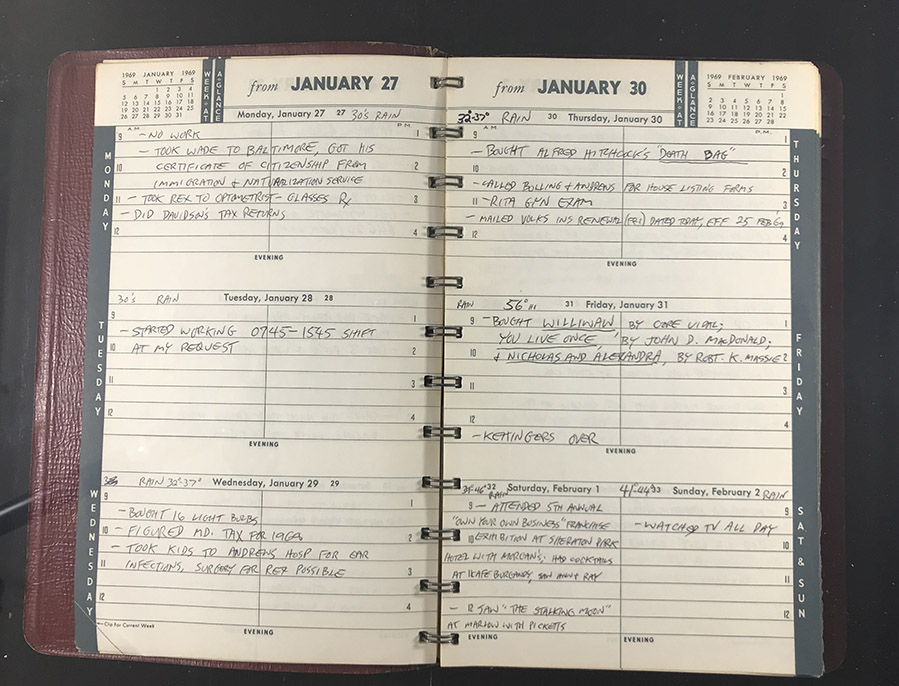 1969 JANUARY 1969
S M T W T F S
1 2 3 4
5 6 7 8 9 10 11
12 13 14 15 16 17 18
19 20 21 22 23 24 25
26 27 28 29 30 31
WEEK-AT
A-GLANCE
from JANUARY 27
MONDAY
Monday, January 27 27 30'S RAIN
A.M. P.M.
9 - NO WORK 1
- TOOK WADE TO BALTIMORE, GOT HIS
10 CERTIFICATE OF CITIZENSHIP FROM 2
IMMIGRATION & NATURALIZATION SERVICE
11 - TOOK REX TO OPTOMETRIST - GLASSES RX 3
- DID DAVIDSON'S TAX RETURNS
12 4
EVENING
TUESDAY
30'S RAIN Tuesday, January 28 28
9 1
- STARTED WORKING 0745-1545 SHIFT
10 AT MY REQUEST 2
11 3
12 4
EVENING
WEDNESDAY
RAIN 32°-37° Wednesday, January 29 29
9 1
- BOUGHT 16 LIGHT BULBS
10 - FIGURED MD. TAX FOR 1968 2
- TOOK KIDS TO ANDREWS HOSP FOR EAR
11 INFECTIONS, SURGERY FOR REX POSSIBLE 3
12 4
Clip For Current Week
EVENING
from JANUARY 30
WEEK-AT
A-GLANCE
1969 FEBRUARY 1969
S M T W T F S
1
2 3 4 5 6 7 8
9 10 11 12 13 14 15
16 17 18 19 20 21 22
23 24 25 26 27 28
THURSDAY
32°-37° RAIN 30 Thursday, January 30
A.M. P.M.
9 1
- BOUGHT ALFRED HITCHCOCK'S "DEATH BAG"
10 2
- CALLED BOLLING & ANDREWS FOR HOUSE LISTING FORMS
11 - RITA GYN EXAM 3
- MAILED VOLKS INS RENEWAL (FRI) DATED TODAY, EFF 25 FEB
12 4
EVENING
FRIDAY
RAIN 56° 31 Friday, January 31
9 - BOUGHT WILLIWAW, BY GORE VIDAL; 1
YOU LIVE ONCE, BY JOHN D. MACDONALD;
10 & NICHOLAS AND ALEXANDRA, BY ROBT. K. MASSIE 2
11 3
12 4
- KEHINGERS OVER
EVENING
SAT & SUN
32 Saturday, February 1
RAIN
9 - ATTENDED 5TH ANNUAL
"OWN YOUR OWN BUSINESS" FRANCHISE
10 EXHIBITION AT SHERATON PARK
HOTEL WITH MORGANS; HAD COCKTAILS
AT BURGUNDY, RAY
- 12 SAW "THE STALKING MOON"
AT MARLOW WITH PICKETTS
EVENING
41°-44° 33 Sunday, February 2 RAIN
9
- WATCHED TV ALL DAY
10
11
12
EVENING